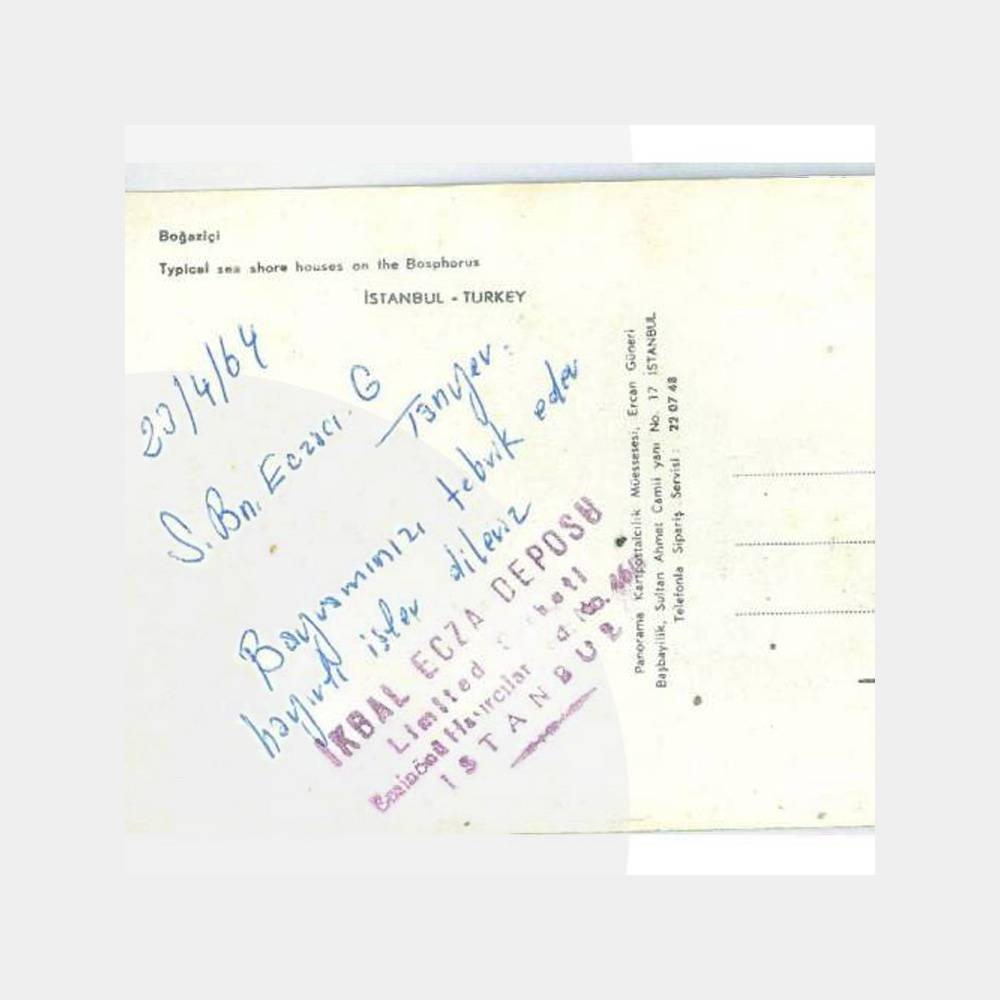 Boğaziçi
Typical sea shore houses on the Bosphorus
İSTANBUL - TURKEY
23/4/64
S. Bn. Eczacı G
Tanyer.
Bayramınızı tebrik eder
hayırlı işler dileriz
İKBAL ECZA DEPOSU
Limited
Hasırcılar No.
İSTANBUL
Panorama Kartpostalcılık Müessesesi, Ercan Güneri
Başbayilik, Sultan Ahmet Camii yanı No. 17 İSTANBUL
Telefonla Sipariş Servisi : 22 07 48